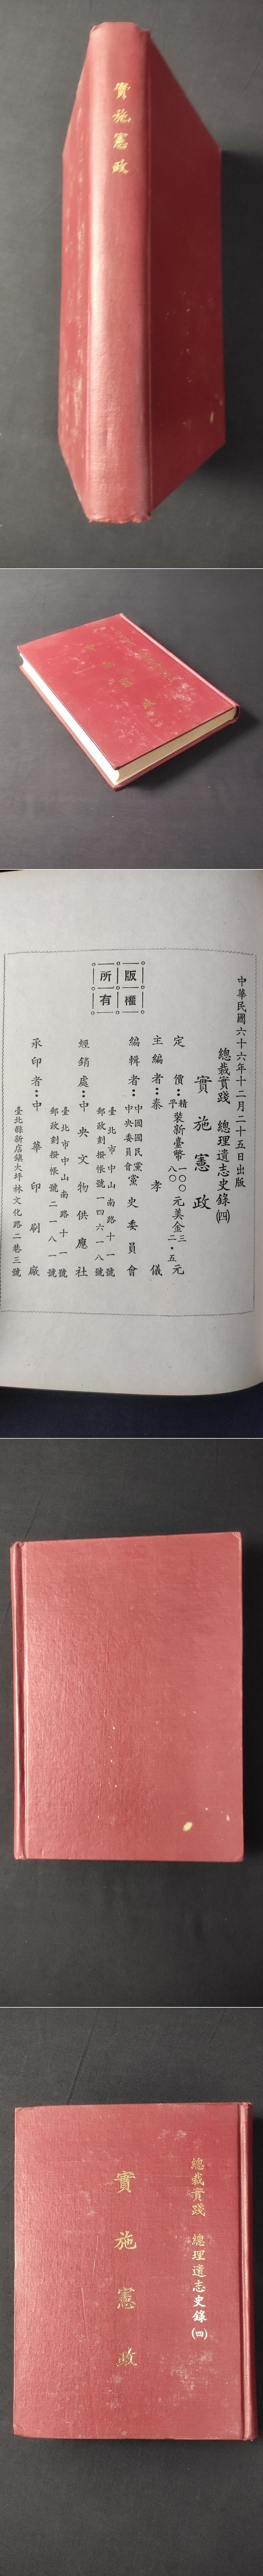 實施憲政
實施憲政
中華民國六十六年十二月二十五日出版
總裁實踐 總理遺志史錄㈣
實施憲政
定價：精裝新臺幣一〇〇元美金三元
平裝新臺幣八〇元美金二•五元
主編者：秦孝儀
編輯者：中國國民黨中央委員會黨史委員會
臺北市中山南路十一號
郵政劃撥帳號一四六一八號
經銷處：中央文物供應社
臺北市中山南路十一號
郵政劃撥帳號二一八一號
承印者：中華印刷廠
臺北縣新店鎮大坪林文化路二巷三號
版權所有
總裁實踐 總理遺志史錄㈣
實施憲政